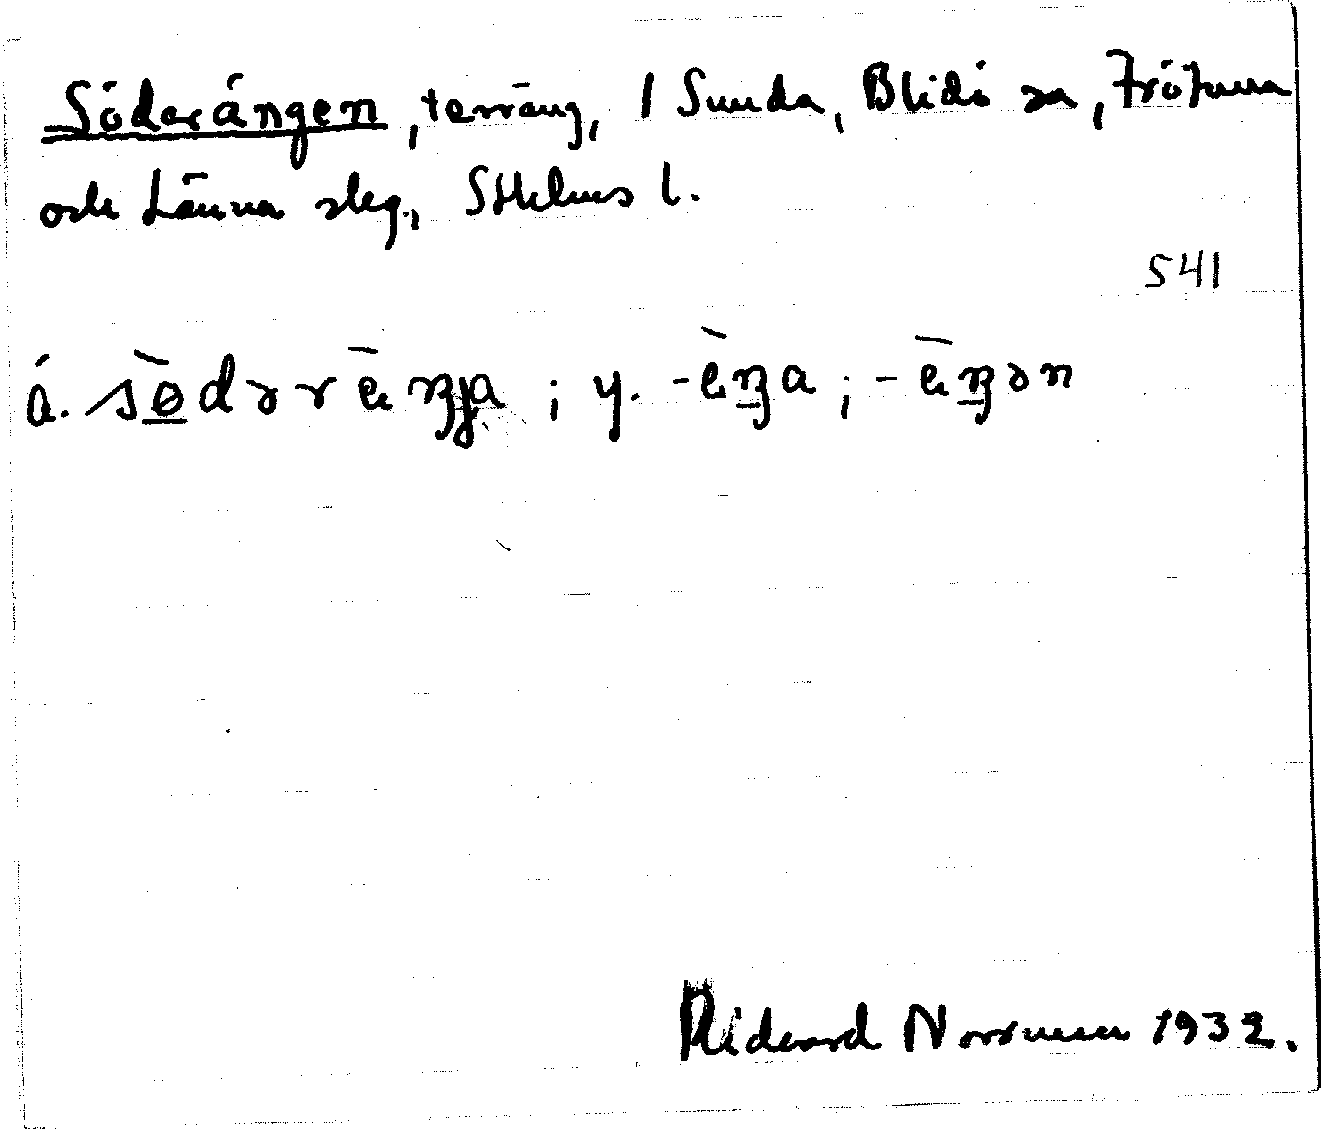 Söderängen, terräng, i Sunda, Blidö sn, Frötuna
och Länna skg, Sthlms l.
541
ä. sø̀dərèŋja ; y. -èŋa ; -èŋən
Rickard Norrman 1932.